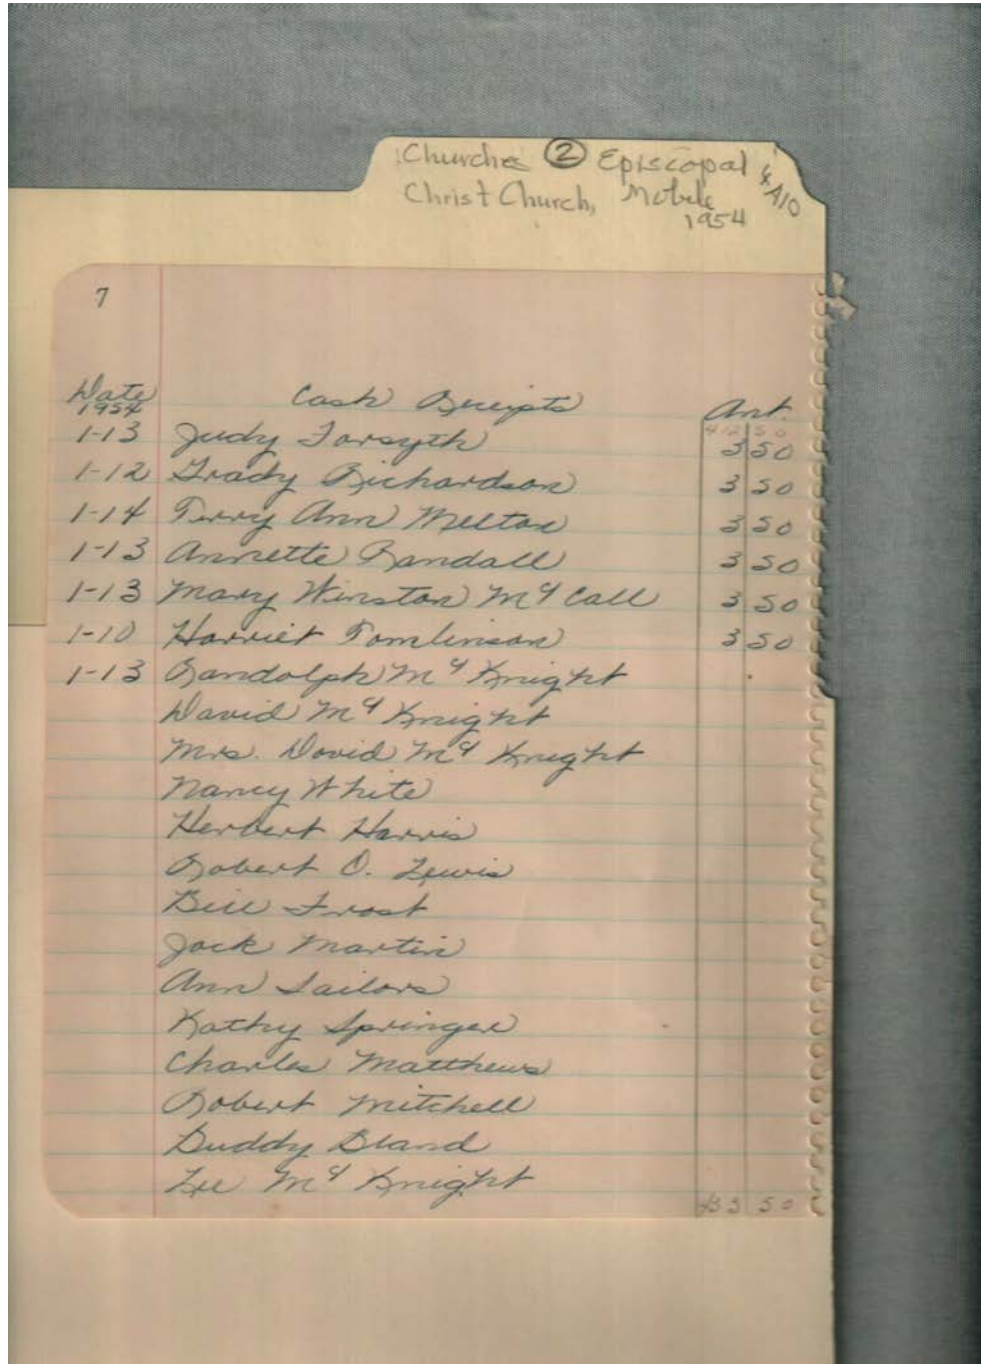 Churches ② Episcopal & A10
Christ Church, Mobile
1954
7
Date 1954 Cash Receipts Amt.
412 50
1-13 Judy Forsyth 3 50
1-12 Grady Richardson 3 50
1-14 Terry Ann Melton 3 50
1-13 Annette Randall 3 50
1-13 Mary Winston McCall 3 50
1-10 Harriet Tomlinson 3 50
1-13 Randolph McKnight
David McKnight
Mrs. David McKnight
Nancy White
Herbert Harris
Robert O. Lewis
Bill Frost
Jack Martin
Ann Sailors
Kathy Springer
Charles Matthews
Robert Mitchell
Buddy Bland
Lee McKnight
433 50